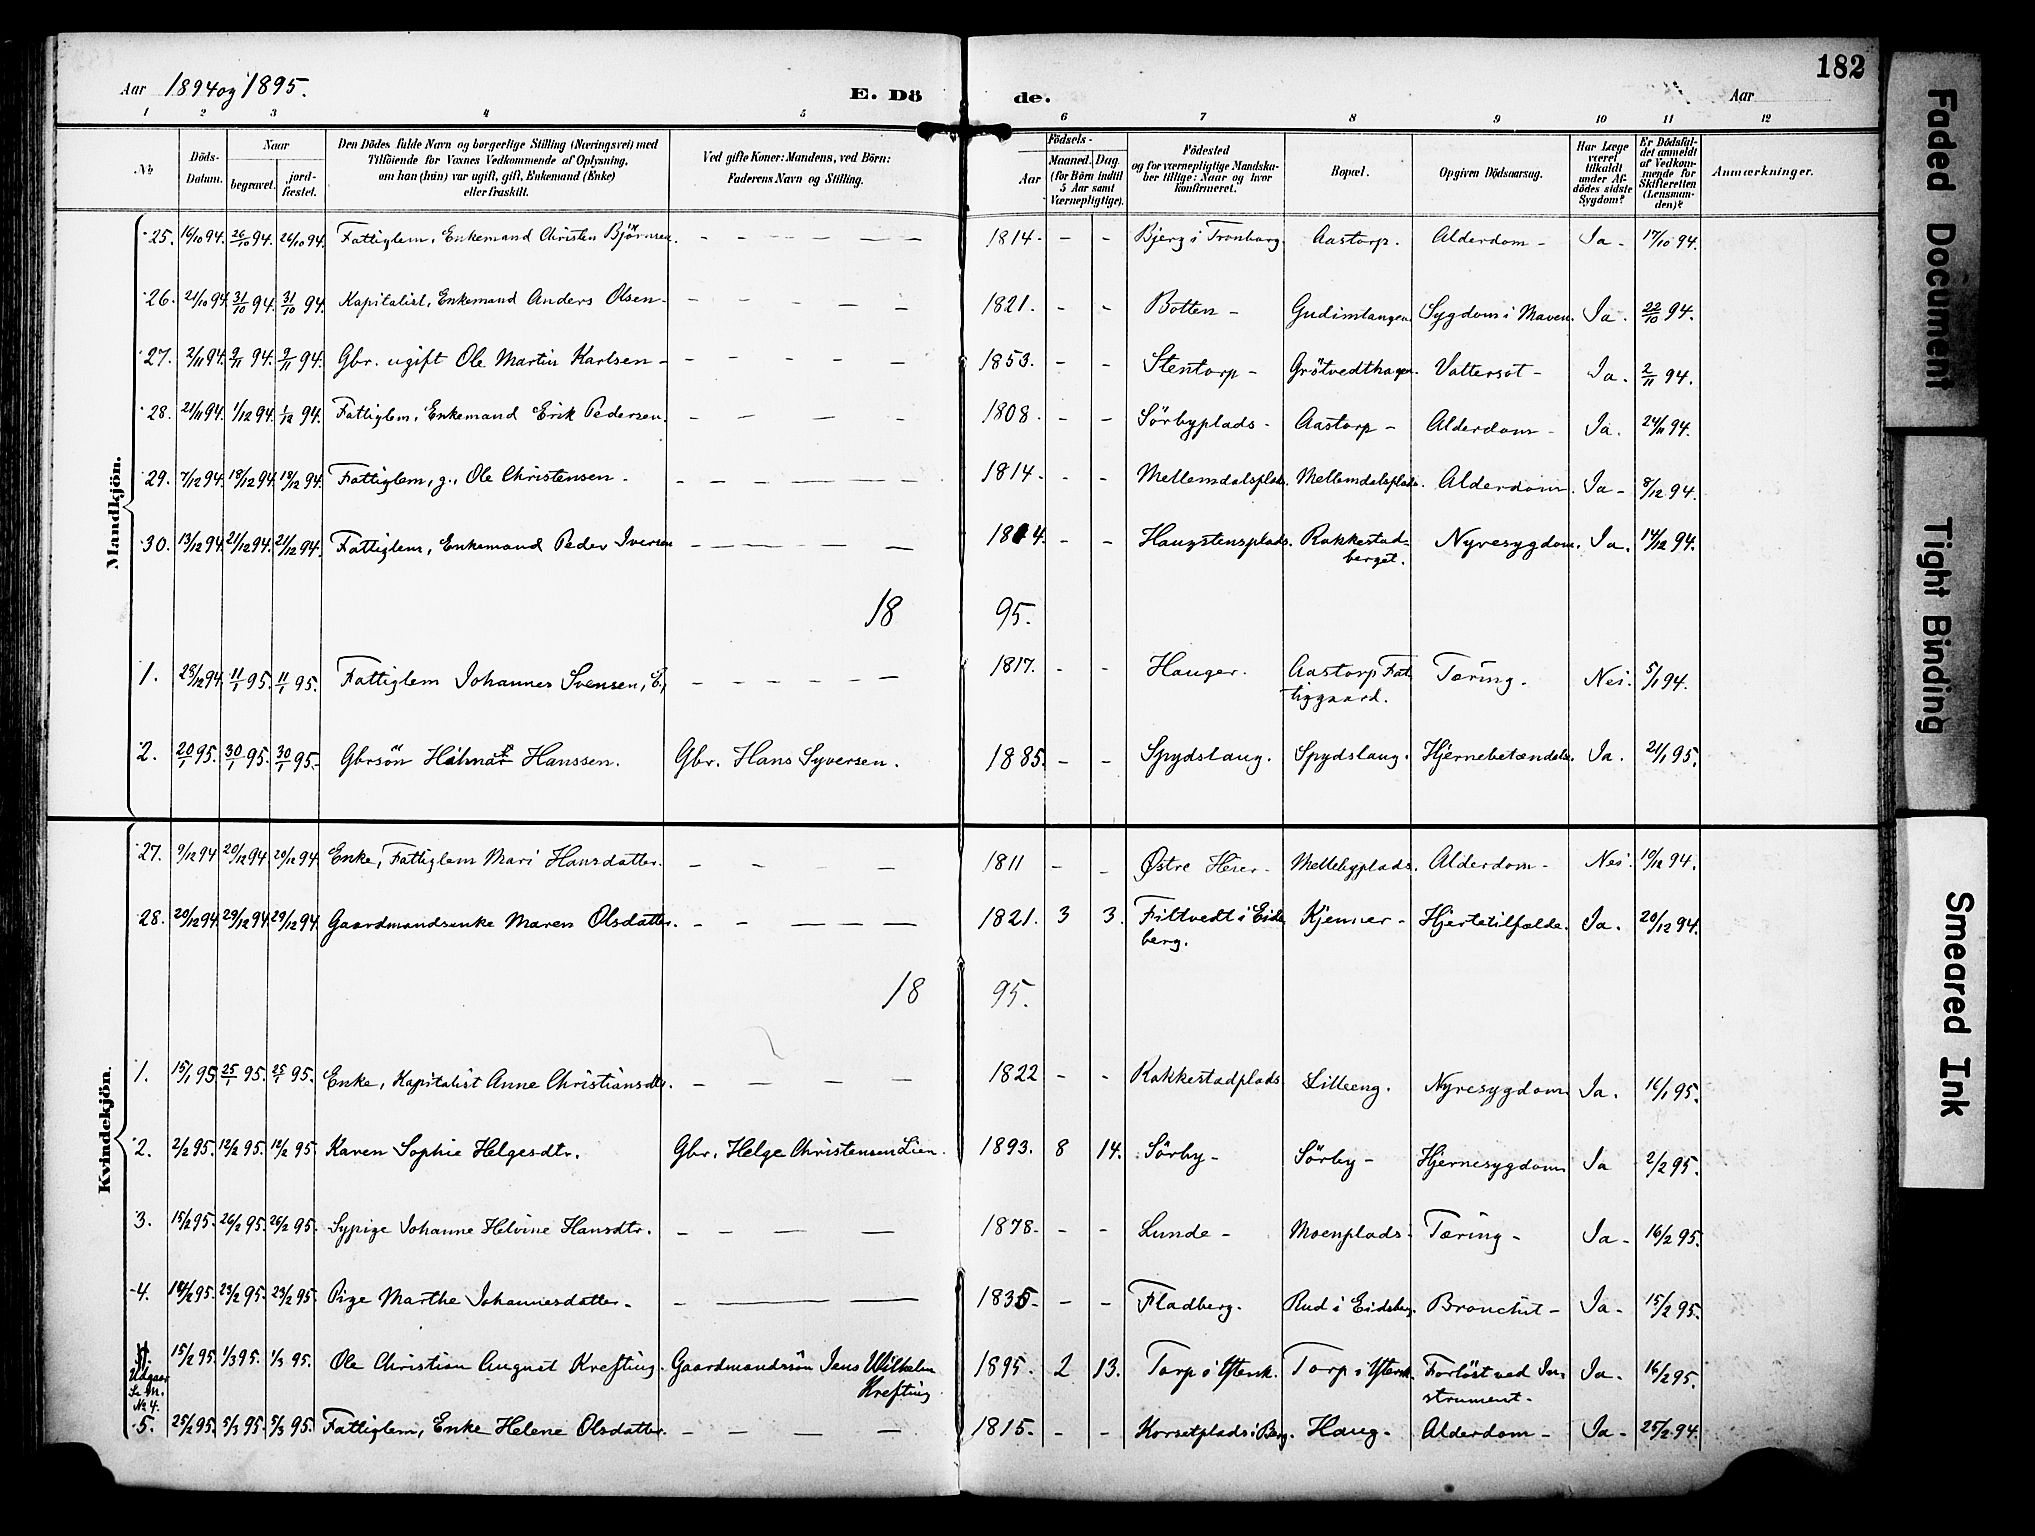 182
Aar 1894 og 1895.
E. Dö de.
Aar
1 2 3 4 5 6 7 8 9 10 11 12
No
Döds-Datum.
Naar
begravet.
jord-fæstet.
Den Dödes fulde Navn og borgerlige Stilling (Næringsvei) med
Tilföiende for Voxnes Vedkommende af Oplysning,
om han (hun) var ugift, gift, Enkemand (Enke)
eller fraskilt.
Ved gifte Koner: Mandens, ved Börn:
Faderens Navn og Stilling.
Födsels-
Aar
Maaned. Dag.
(for Börn indtil
5 Aar samt
Værnepligtige).
Födested
og for værnepligtige Mandska-
ber tillige: Naar og hvor
konfirmeret.
Bopæl.
Opgiven Dödsaarsag.
Har Læge
været
tilkaldt
under Af-
dödes sidste
Sygdom?
Er Dödsfal-
det anmeldt
af Vedkom-
mende for
Skifteretten
(Lensman-
den)?
Anmærkninger.
Mandkjön.
25. 16/10 94. 26/10 94. 26/10 94. Fattiglem, Enkemand Christen Björnsen. - - - - - 1814 - - - Bjerg i Tronborg. Aastorp. Alderdom - Ja - 17/10 94.
26. 21/10 94. 31/10 94. 31/10 94. Kapitalist, Enkemand Anders Olsen - - - - - - 1821. - - Botten - Gudimlangen. Sygdom i Maven. Ja. 22/10 94.
27. 2/11 94. 9/11 94. 9/11 94. Gbr. ugift Ole Martin Karlsen - - - - - - 1853. - - Stentorp - Grötvedthagen. Vattersot - Ja. 2/11 94.
28. 21/11 94. 1/12 94. 1/12 94. Fattiglem, Enkemand Erik Pedersen. - - - - 1808. - - Sörbyplads - Aastorp - Alderdom - Ja. 24/11 94.
29. 7/12 94. 18/12 94. 18/12 94. Fattiglem, g., Ole Christensen - - - - - - - 1814. - - Mellemdalsplads. Mellemdalsplads. Alderdom. Ja - 8/12 94.
30. 13/12 94. 21/12 94. 21/12 94. Fattiglem, Enkemand Peder Iversen - - - - - 1814. - - Haugstensplads. Rakkestad-
berget. Nyresygdom. Ja. 14/12 94.
18 95.
1. 28/12 94. 11/1 95. 11/1 95. Fattiglem Johannes Svensen, E., - - - - - - 1817. - - Hauger. Aastorp Fat-
tiggaard. Tæring. Nei. 5/1 94.
2. 20/1 95. 30/1 95. 30/1 95. Gbrsön Hanssen. Gbr. Hans Syversen. 1885. - - Spydslaug. Spydslaug. Hjernebetændelse. Ja. 21/1 95.
Kvindekjön.
27. 9/12 94 20/12 94 20/12 94 Enke, Fattiglem Mari Hansdatter. - - - - 1811 - - Østre Herer - Mellebyplads. Alderdom - Nei. 10/12 94.
28. 20/12 94. 29/12 94. 29/12 94. Gaardmandsenke Maren Olsdatter. - - - - - 1821. 3 3. Fittvedt i Eids-
berg. Kjenner - Hjertetilfælde. Ja. 20/12 94.
18 95.
1. 15/1 95. 25/1 95. 25/1 95. Enke, Kapitalist Anne Christiansdtr. - - - - 1822 - - Rakkestadplads. Lilleeng. Nyresygdom Ja. 16/1 95.
2. 2/2 95. 12/2 95. 12/2 95. Karen Sophie Helgesdtr. Gbr. Helge Christensen Lien. 1893. 8 14. Sörby - Sörby - Hjernesygdom Ja 2/2 95.
3. 15/2 95. 26/2 95. 26/2 95. Sypige Johanne Helvine Hansdtr. - - - - 1878 - - - Lunde - Moenplads - Tæring - Ja - 16/2 95.
4. 14/2 95. 23/2 95. 23/2 95. Pige Marthe Johannesdatter - - - - 1835 - - - Fladberg. Rud i Eidsberg. Bronchit - Ja - 15/2 95.
Udgaar
Se M.
No 4.
15/2 95. 1/3 95. 1/3 95. Ole Christian August Krefting. Gaardmandssön Jens Wilhelm
Krefting. 1895. 2 13. Torp i Ytterk. Torp i Ytterk. Forlöst ved In-
strument - Ja - 16/2 95.
5. 25/2 95. 5/3 95. 5/3 95. Fattiglem, Enke Helene Olsdatter. - - - - 1815. - - Korsetplads i Berg. Haug - Alderdom - Ja - 25/2 94.
Faded Document
Tight Binding
Smeared Ink